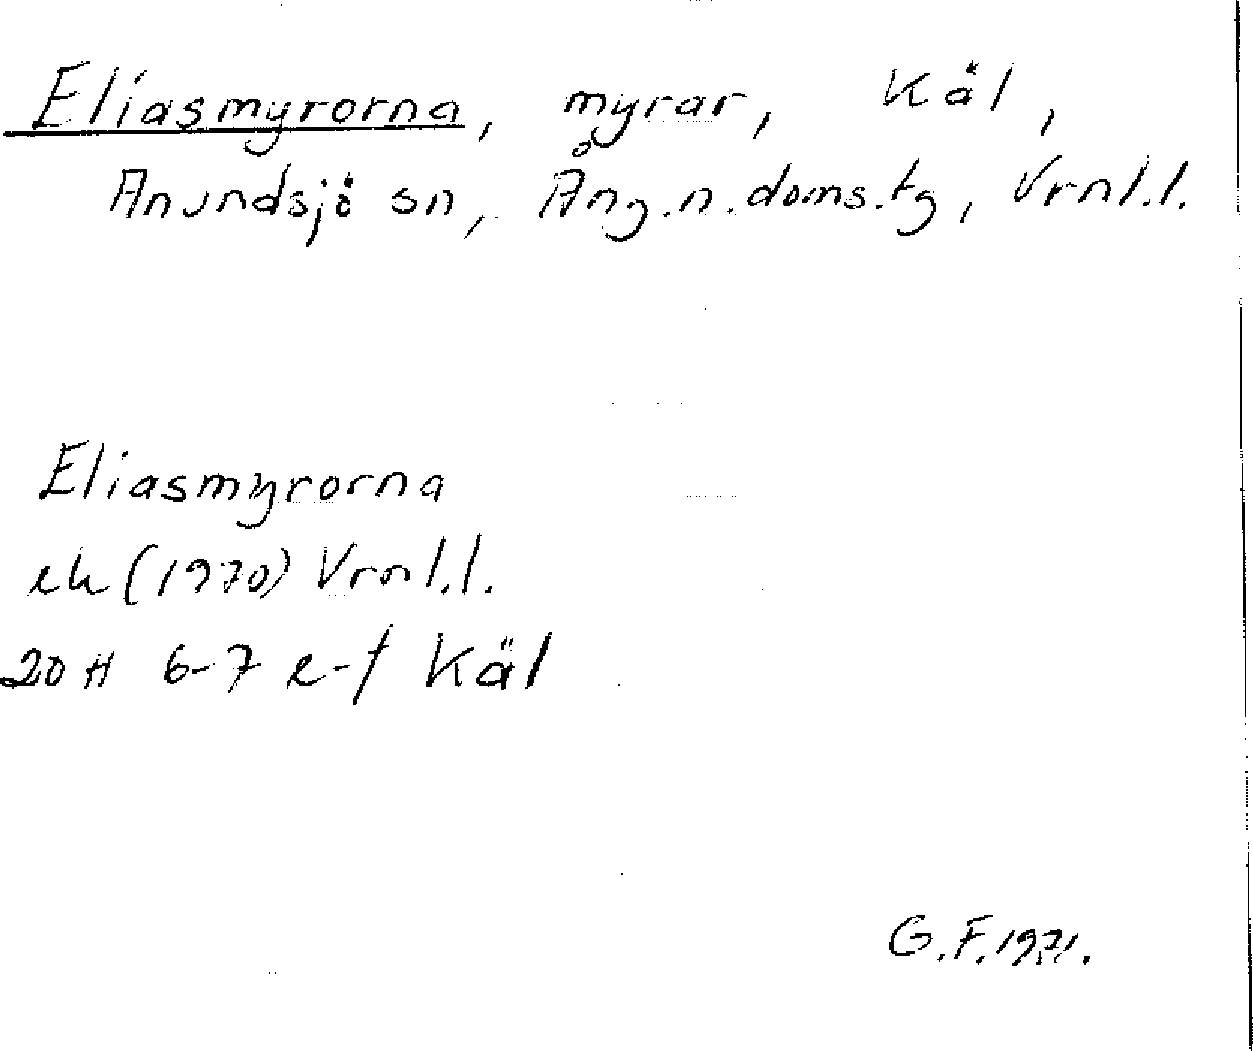 Eliasmyrorna, myrar, Käl,
Anundsjö sn, Ång.n.doms.tg, Vrnl.l.
Eliasmyrorna
ek (1970) Vrnl.l.
20 H 6-7 e-f Käl
G.F. 1971.